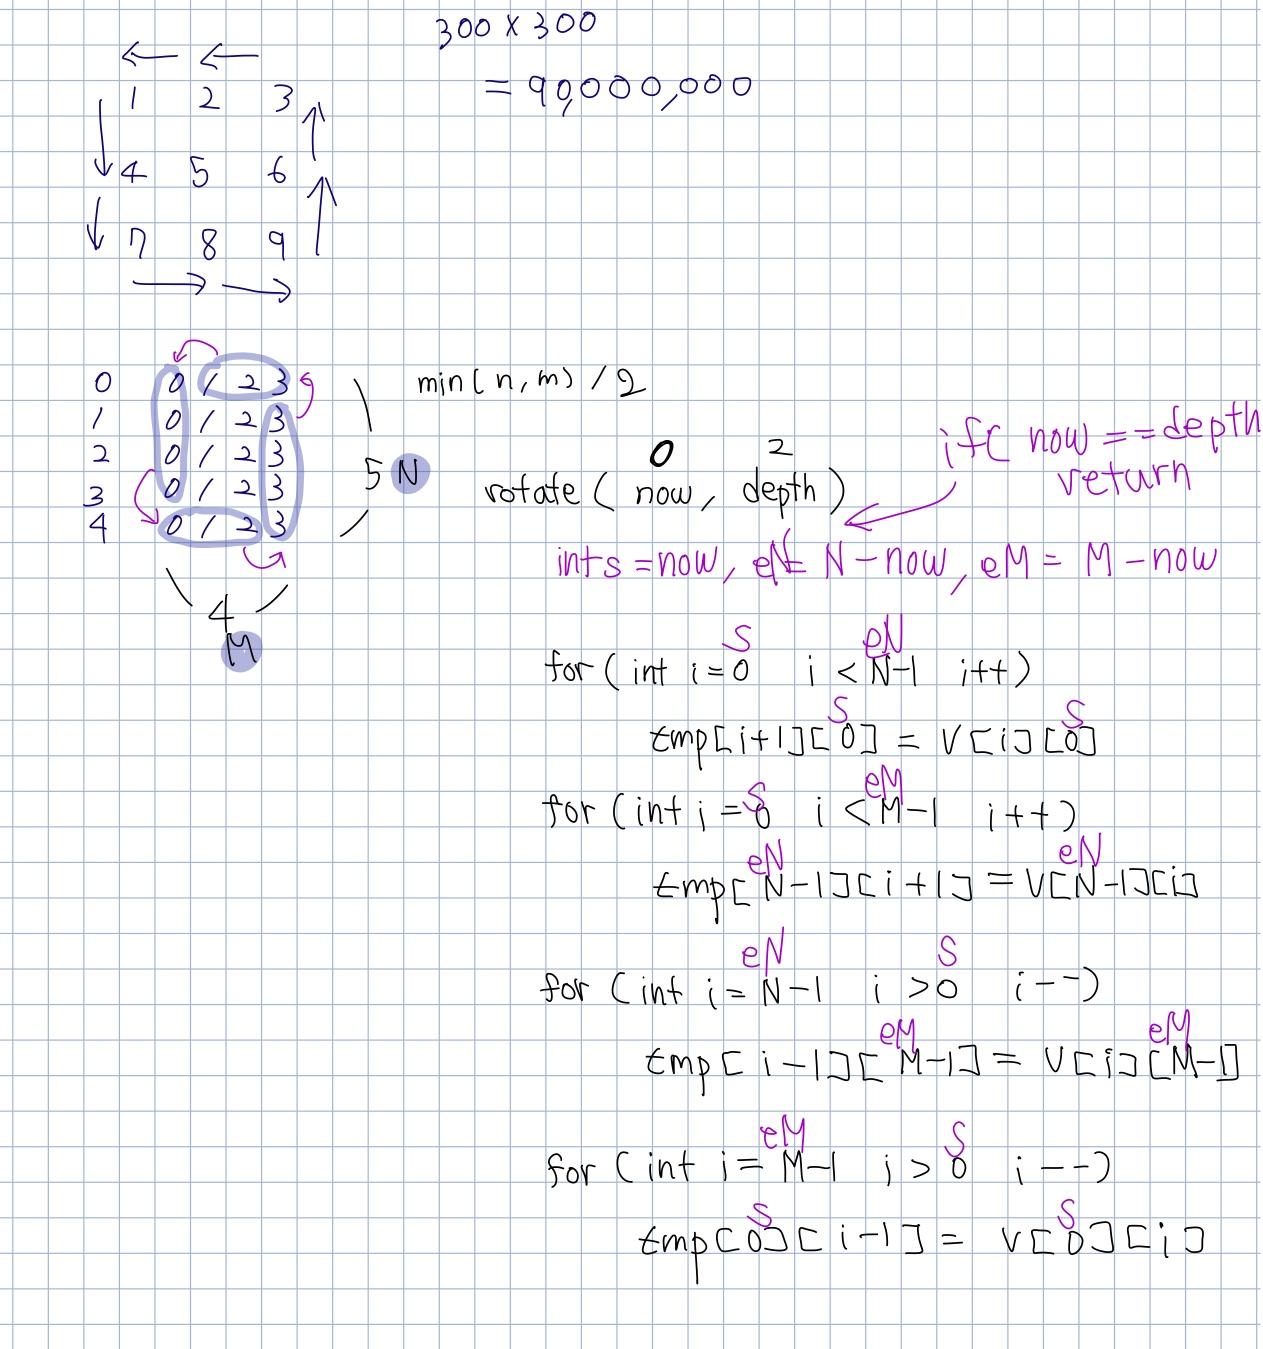 300 x 300
= 90,000,000
1 2 3
4 5 6
7 8 9
0 0 1 2 3
1 0 1 2 3
2 0 1 2 3
3 0 1 2 3
4 0 1 2 3
5 N
4
M
min(n, m) / 2
0 2
rotate ( now, depth )
if( now == depth
return
int s = now, eN = N - now, eM = M - now
S eN
for ( int i = 0 i < N-1 i++ )
S S
tmp[i+1][0] = V[i][0]
S eM
for ( int i = 0 i < M-1 i++ )
eN eN
tmp[N-1][i+1] = V[N-1][i]
eN S
for ( int i = N-1 i > 0 i-- )
eM eM
tmp[i-1][M-1] = V[i][M-1]
eM S
for ( int i = M-1 i > 0 i-- )
S S
tmp[0][i-1] = V[0][i]